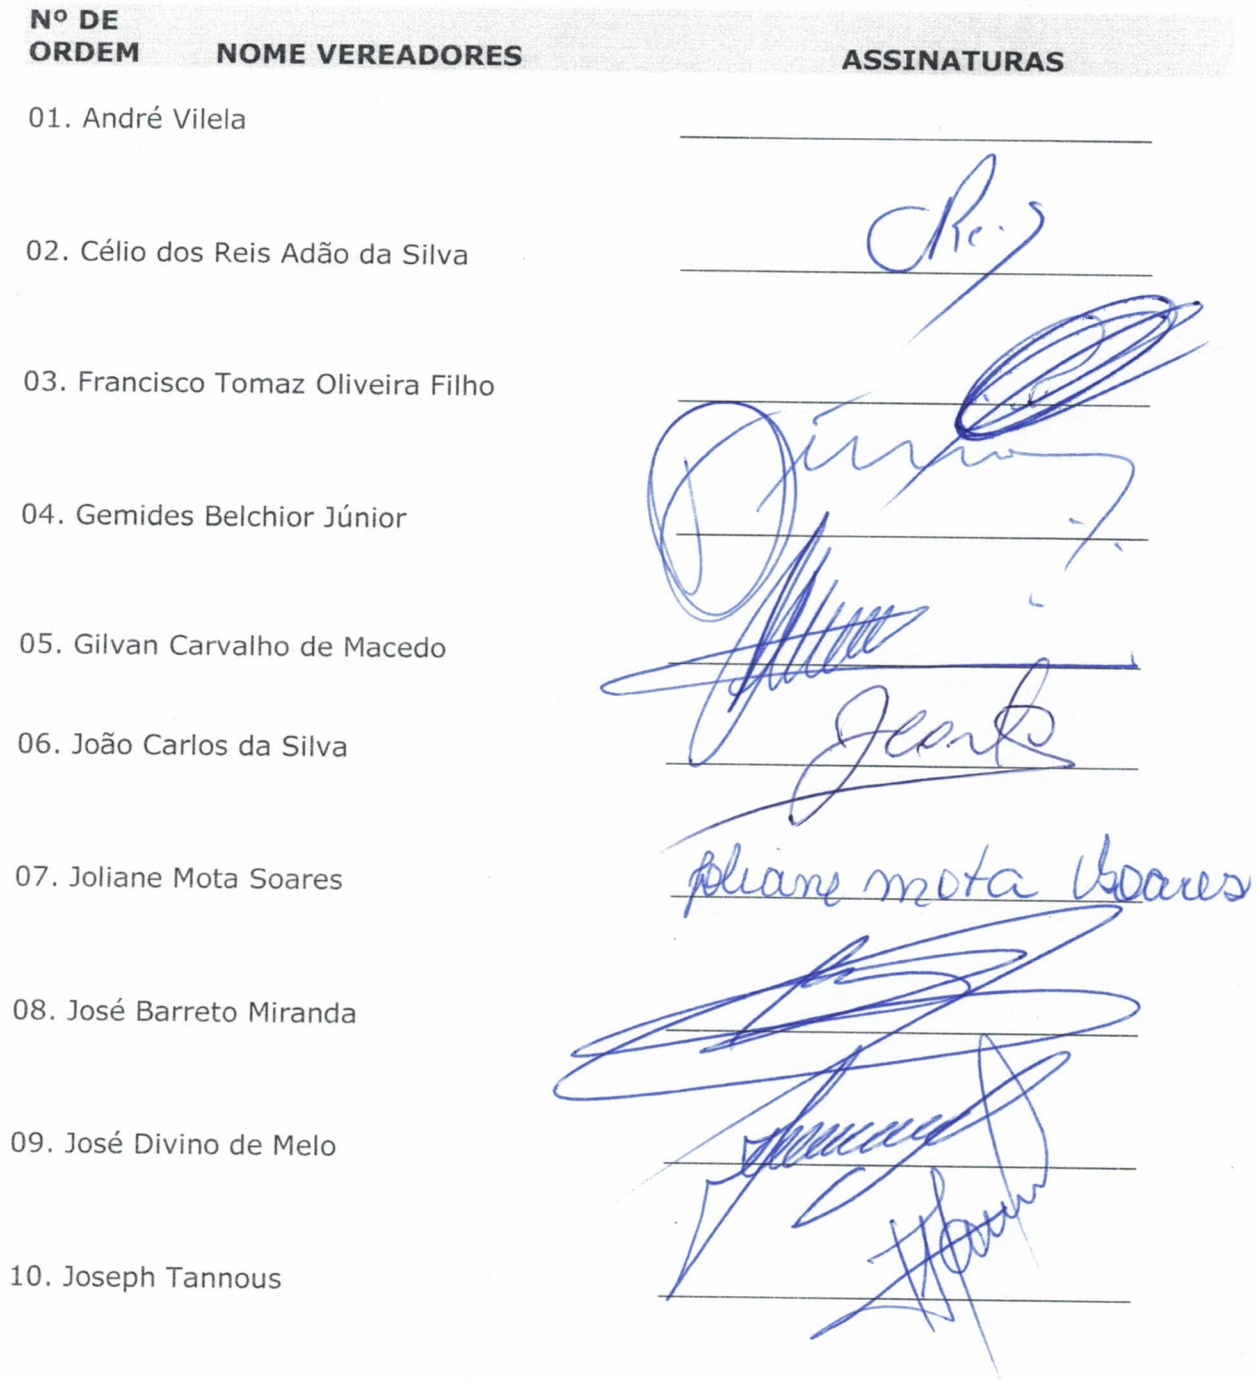 Nº DE
ORDEM NOME VEREADORES ASSINATURAS
01. André Vilela
02. Célio dos Reis Adão da Silva CReis
03. Francisco Tomaz Oliveira Filho
04. Gemides Belchior Júnior
05. Gilvan Carvalho de Macedo
06. João Carlos da Silva
07. Joliane Mota Soares Joliane mota Soares
08. José Barreto Miranda
09. José Divino de Melo
10. Joseph Tannous